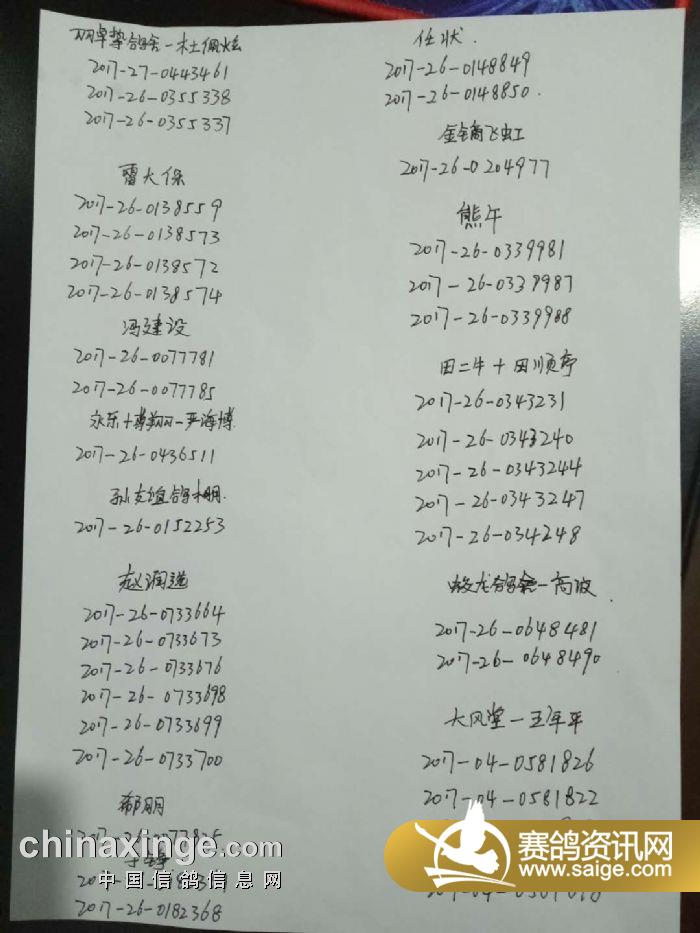 2017-27-0443461
2017-26-0355338
2017-26-0355337
雷大保
2017-26-0138559
2017-26-0138573
2017-26-0138572
2017-26-0138574
冯建设
2017-26-0077781
2017-26-0077785
永乐+博翔-严海博
2017-26-0436511
孙友谊鸽棚
2017-26-0152253
赵润选
2017-26-0733664
2017-26-0733673
2017-26-0733676
2017-26-0733698
2017-26-0733699
2017-26-0733700
郗朋
2017-26-0182368
任状
2017-26-0148849
2017-26-0148850
金镝飞虹
2017-26-0204977
熊午
2017-26-0339981
2017-26-0339987
2017-26-0339988
田二牛+田顺亭
2017-26-0343231
2017-26-0343240
2017-26-0343244
2017-26-0343247
2017-26-034248
蛟龙鸽舍-高波
2017-26-0648481
2017-26-0648490
大风堂-王年平
2017-04-0581826
2017-04-0581822
chinaxinge.com
中国信鸽信息网
赛鸽资讯网
www.saige.com